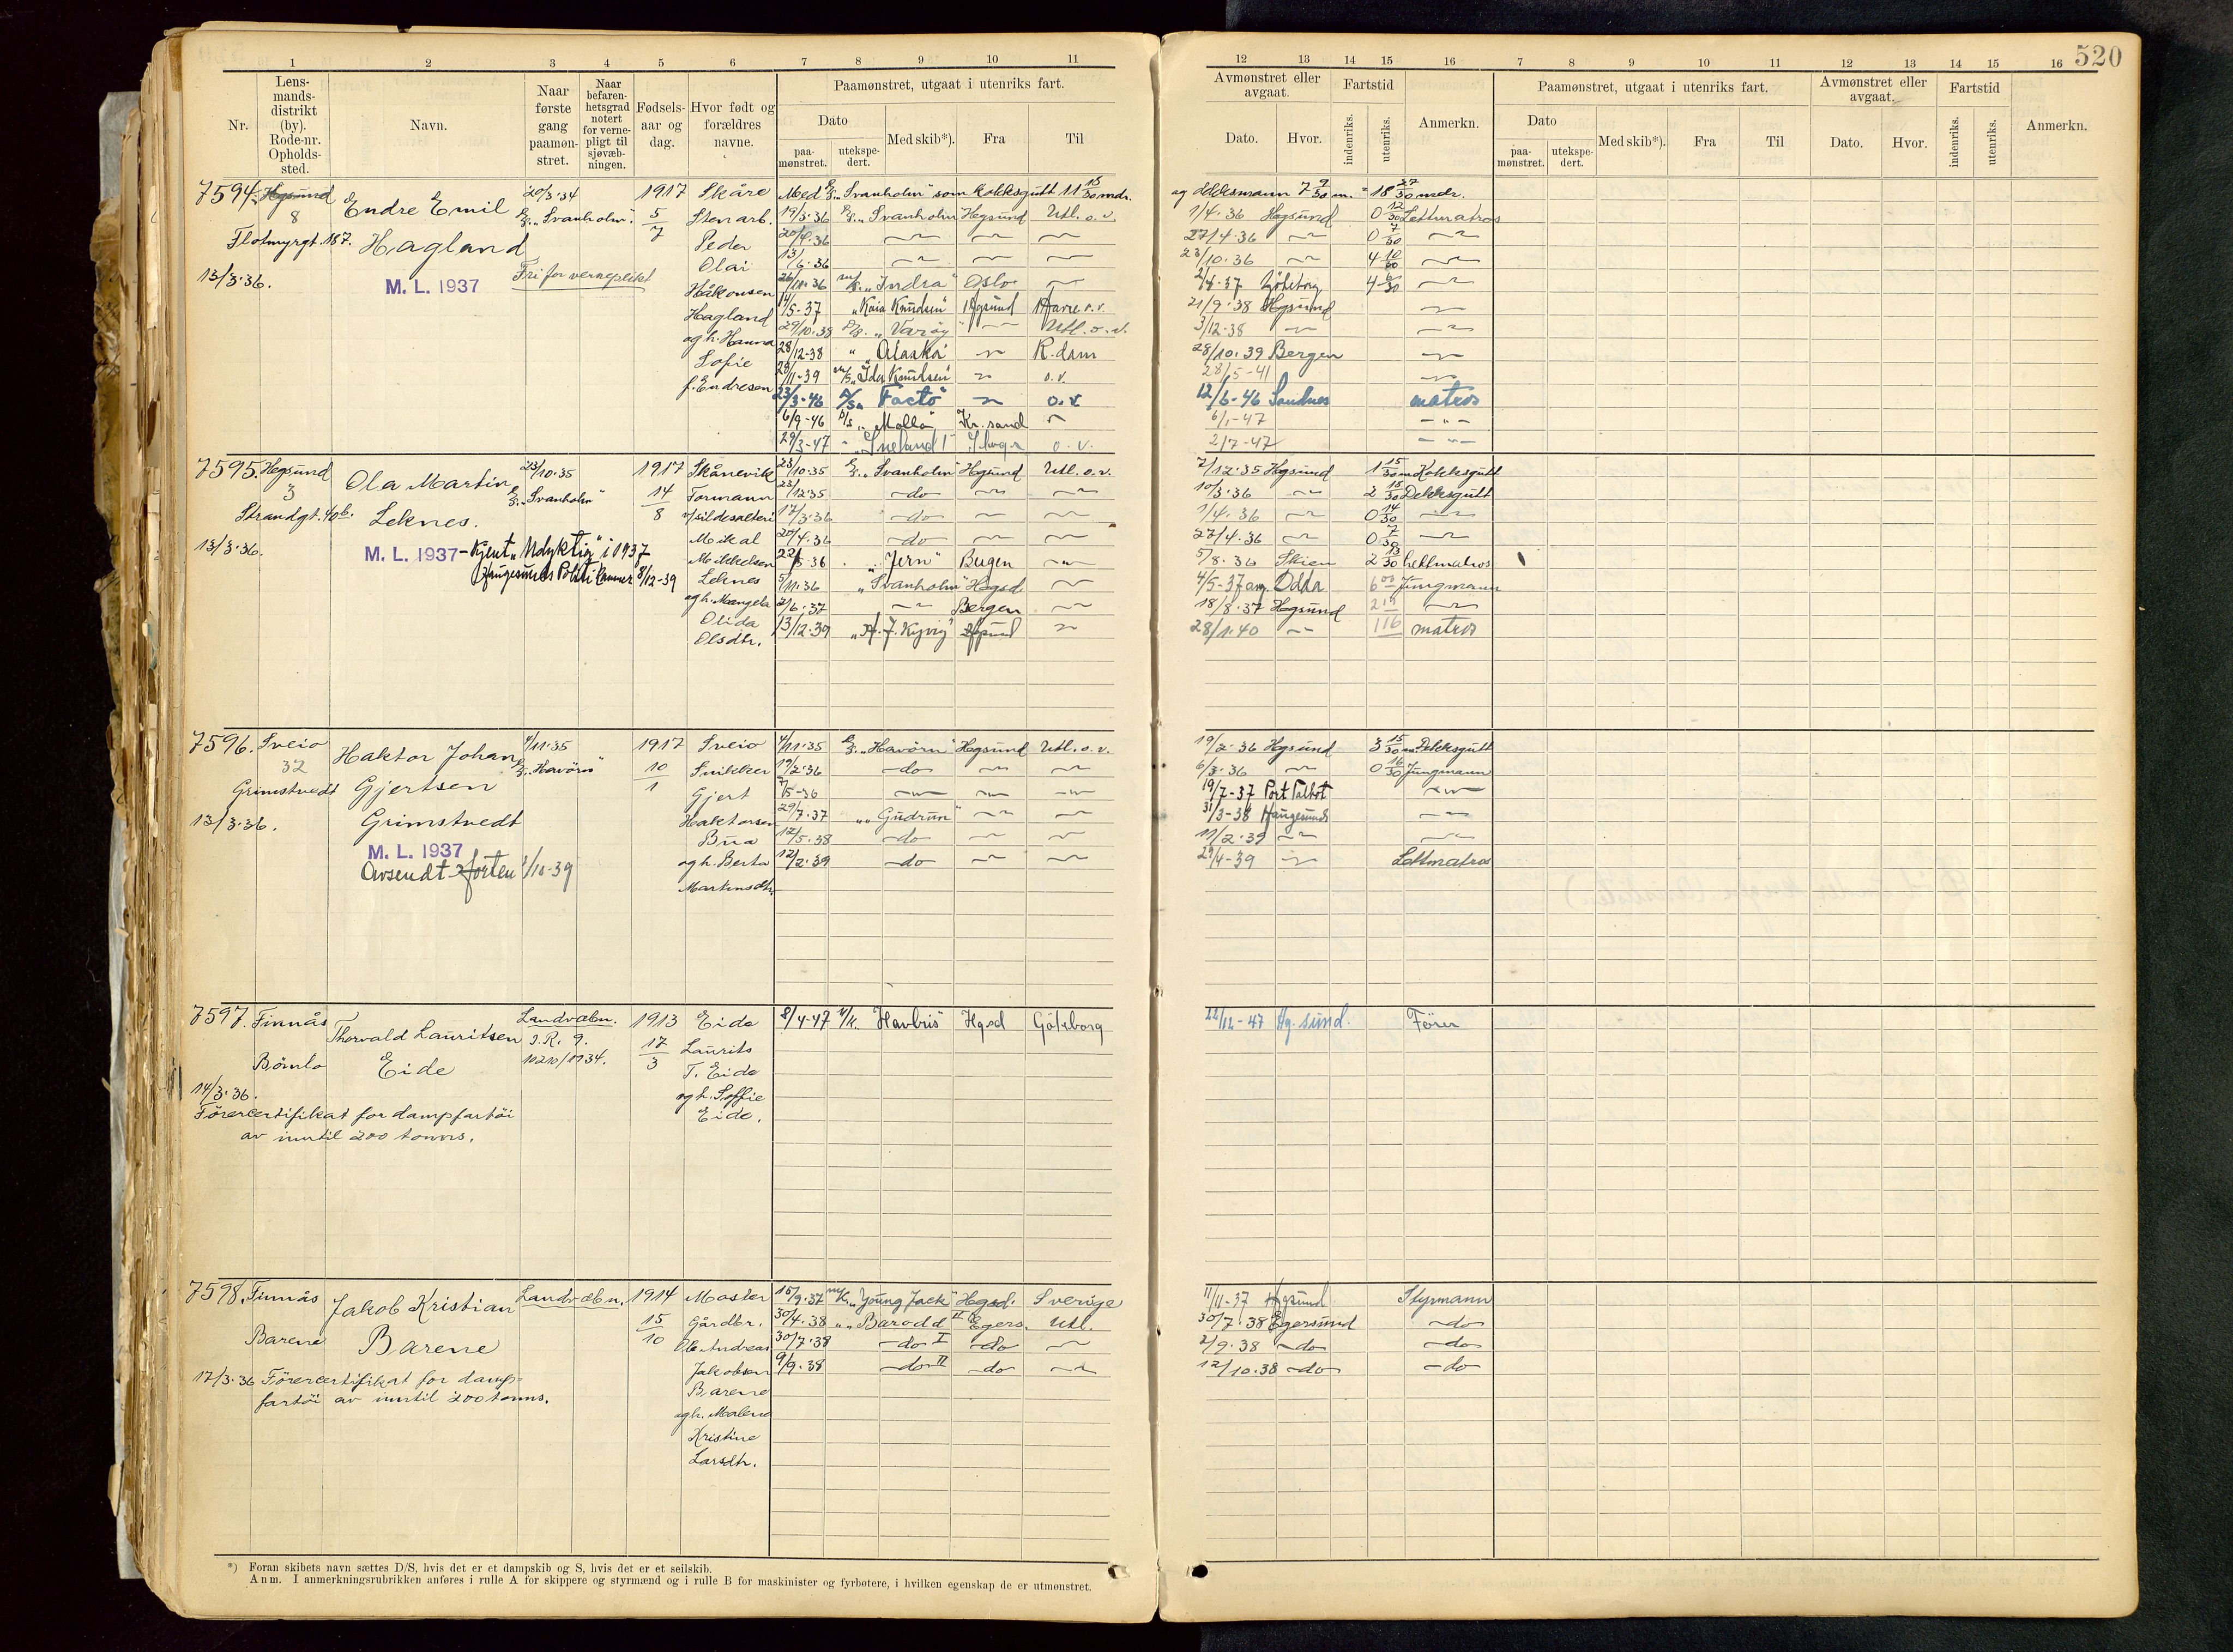 520
1 2 3 4 5 6 7 8 9 10 11
12 13 14 15 16 7 8 9 10 11 12 13 14 15 16
Nr.
Lens-
mands-
distrikt
(by).
Rode-nr.
Opholds-
sted.
Navn.
Naar
første
gang
paamøn-
stret.
Naar
befaren-
hetsgrad
notert
for verne-
pligt til
sjøvæb-
ningen.
Fødsels-
aar og
dag.
Hvor født og
forældres
navne.
Paamønstret, utgaat i utenriks fart.
Dato
paa-
mønstret.
utekspe-
dert.
Med skib*).
Fra
Til
Avmønstret eller
avgaat.
Dato.
Hvor.
Fartstid
indenriks.
utenriks.
Anmerkn.
Paamønstret, utgaat i utenriks fart.
Dato
paa-
mønstret.
utekspe-
dert.
Med skib*).
Fra
Til
Avmønstret eller
avgaat.
Dato.
Hvor.
Fartstid
indenriks.
utenriks.
Anmerkn.
7594. Hgsund
8
Flotmyrgt. 187.
13/3·36.
Endre Emil
Hagland
M. L. 1937
20/3·34
D/S. „Svanholm".
Fri for verneplikt
1917
5/7
Skåre
Stenarb.
Peder
Olai
Håkonsen
Hagland
og h. Hanna
Sofie
f. Endresen
Med D/S. „Svanholm" som kokksgutt 11 15/30 mdr. og dekksmann 7 9/30 m. = 18 27/30 mdr.
19/3·36 D/S. „Svanholm" Hgsund Utl. o. v. 1/4·36 Hgsund 0 12/30 Lettmatros
20/4·36 27/4·36 0 7/30
13/6·36 23/10·36 4 10/30
26/10·36 M/S. „Indra" Oslo 2/4·37 Göteborg
14/5-37 „Kaia Knudsen" Hgsund Havre o. v. 21/9·38 Hgsund
29/10·38 D/S. „Varöy" Utl. o. v. 3/12·38
28/12-38 „Alaska" R.dam 28/10·39 Bergen
/11-39 M/S „Ida Knudsen" o. v. 28/5-41
23/3·46 D/S „Facto" o. v. 12/6-46 Sandnes matros
6/9-46 D/S „Molla" Kr. sand 6/1-47
29/3-47 o. v. 2/7-47
7595. Hgsund
3
Strandgt. 40b.
13/3·36.
Ola Martin
Leknes.
M. L. 1937 - Kjent „Udyktig" i 1937
Haugesunds Politikammer 8/12-39
23/10·35
D/S. „Svanholm"
1917
14/8
Skånevik
Formann
v/sildesalteri
Mikal
Mikkelsen
Leknes
og h. Mangela
Olida
Olsdtr.
23/10·35 D/S. „Svanholm" Hgsund Utl. o. v. 7/12·35 Hgsund 1 15/30 m Kokksgutt
23/12·35 do 10/3·36 2 18/30 Dekksgutt
17/3·36 do 1/4·36 0 14/30
20/4·36 do 27/4·36 0 7/30
22/5·36 „Jern" Bergen 5/8·36 Skien 2 13/30 Lettmatros
5/11·36 „Svanholm" Hgsd 4/5-37 Odda 6 00 Jungmann
2/6·37 Bergen 18/8·37 Hgsund
13/12·39 „H. J. Kyvig" Hgsund 28/1·40 matros
7596. Sveio
32
Grimstvedt
13/3·36.
Haktor Johan
Gjertsen
Grimstvedt
M. L. 1937
Avsendt Horten /10-39
4/11·35
D/S. „Havörn"
1917
10/1
Sveio
Snikker
Gjert
Haktorsen
Bua
og h. Berta
Martinsdtr.
4/11·35 D/S. „Havörn" Hgsund Utl. o. v. 19/2·36 Hgsund 3 15/30 m. Dekksgutt
19/2·36 do 6/3·36 0 16/30 Jungmann
7/5-36 19/7-37 Port Talbot
29/7·37 „Gudrun" 31/3-38 Haugesund
12/5·38 do 11/2·39
12/2·39 do 29/4-39 Lettmatros
7597. Finnås
Bömlo
14/3·36.
Förercertifikat for dampfartöi
av inntil 200 tonns.
Thorvald Lauritsen
Eide
Landvæbn.
I. R. 9.
10210/1934.
1913
17/3
Eide
Laurits
T. Eide
og h. Soffie
Eide.
8/4-47 M/K. "Havbris" Hgsd Göteborg 22/12-47 Hg.sund. Förer
7598. Finnås
Barene
17/3·36 Förercertifikat for damp-
fartöi av inntil 200 tonns.
Jakob Kristian
Barene
Landvæbn.
1914
15/10
Moster
Gårdbr.
Ole Andreas
Jakobsen
Barene
og h. Malena
Kristine
Larsdtr.
15/9·37 M/K. „Young Jack" Hgsd. Sverige 11/11-37 Hgsund Styrmann
30/4·38 „ „Barodd II" Egers. Utl. 30/7·38 Egersund do
30/7·38 do I do 2/9·38 do do
9/9·38 do II do 12/10·38 do do
*) Foran skibets navn sættes D/S, hvis det er et dampskib og S, hvis det er et seilskib.
Anm. I anmerkningsrubrikken anføres i rulle A for skippere og styrmænd og i rulle B for maskinister og fyrbøtere, i hvilken egenskap de er utmønstret.